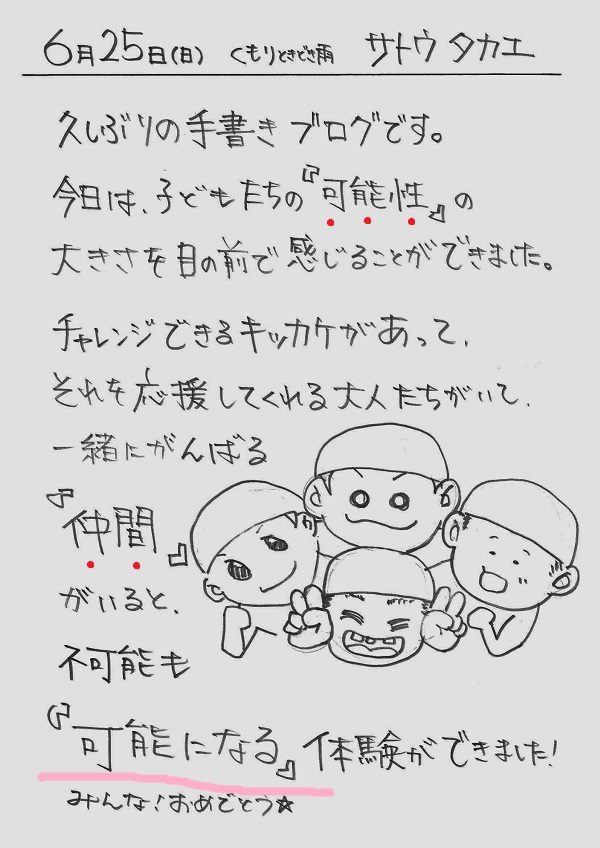 6月25日(日) くもりときどき雨 サトウ タカエ
久しぶりの手書きブログです。
今日は、子どもたちの『可能性』の
大きさを目の前で感じることができました。
チャレンジできるキッカケがあって、
それを応援してくれる大人たちがいて、
一緒にがんばる
『仲間』
がいると、
不可能も
『可能になる』体験ができました!
みんな!おめでとう☆